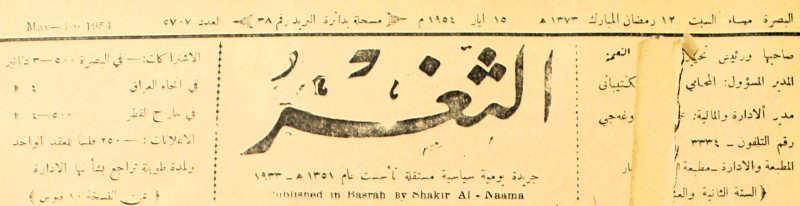 البصرة مساء السبت ١٢ رمضان المبارك ١٣٧٣ ه ١٥ ايار ١٩٥٤ م مسجلة بدائرة البريد رقم ٣٨ العدد ٥٧٠٧
May-15-1954
صاحبها ورئيس النعمة
المدير المسؤول: المحامي
مدير الادارة والمالية:
رقم التلفون — ٣٣٣٤
المطبعة والادارة — مطبعة
﴿ السنة الثانية
الثغر
جريدة يومية سياسية مستقلة تأسست عام ١٣٥١ هـ — ١٩٣٣
Published in Basrah By Shakir Al-Naama
الاشتراكات:— في البصرة ٥٠٠—٣ دنانير
في انحاء العراق ٤ »
في خارج القطر ٥٠٠—٤ »
الاعلانات:— ٢٥٠ فلسا للعقد الواحد
ولمدة طويلة تراجع بشأنها الادارة
﴿ ثمن النسخة ١٠ فلوس ﴾